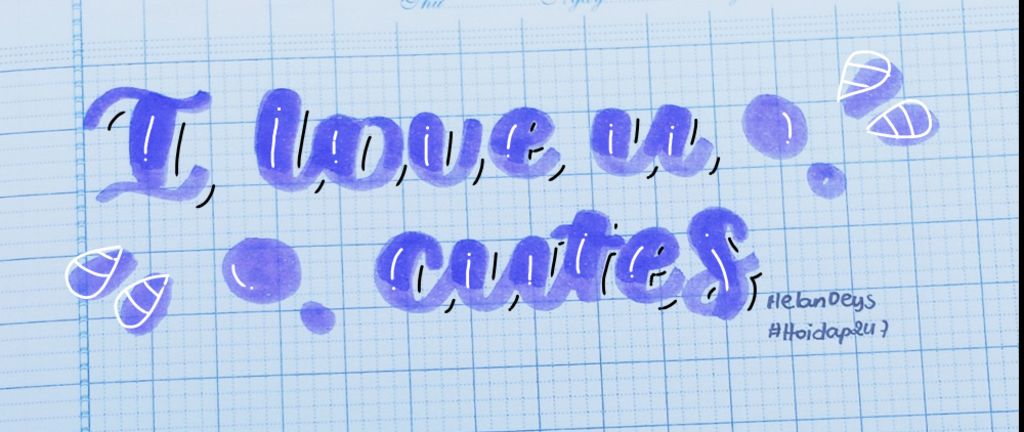 I love u
cutes
HelanDeys
#Hoidap247